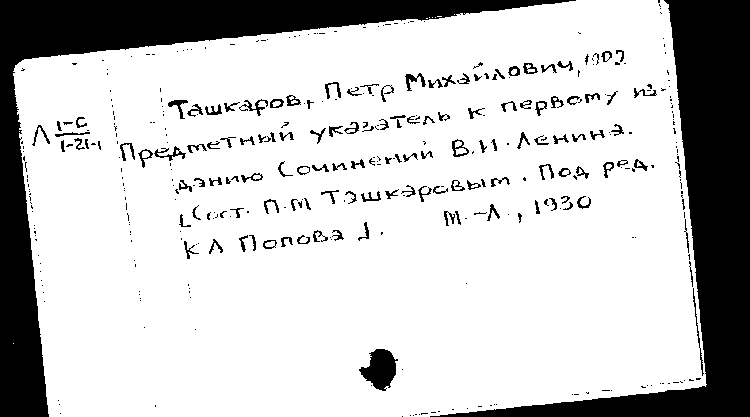 Ташкаров, Петр Михайлович, 1902
Л 1-С
1-21-1
Предметный указатель к первому из-
данию Сочинений В.И. Ленина.
[Сост. П.М Ташкаровым. Под ред.
К Л Попова].   М.-Л., 1930